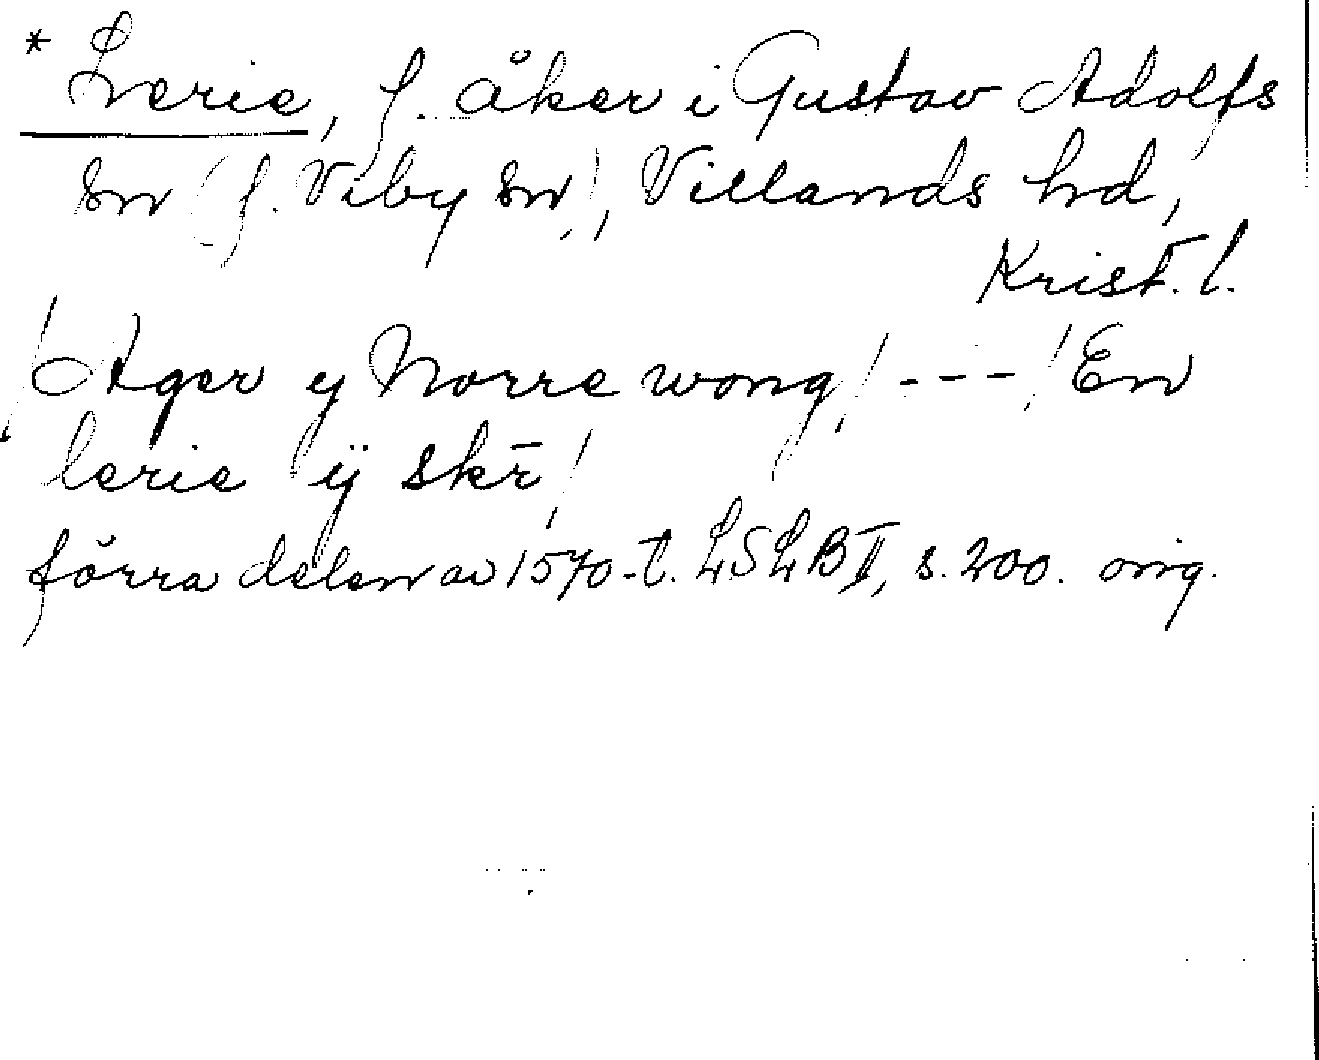 * Lerie, f. åker i Gustav Adolfs
sn (f. Viby sn), Villands hd,
Krist. l.
/Ager y Norre wong/ - - - /En
lerie ÿ skr̄/
förra delen av 1570-t. LSLB II, s. 200. orig.